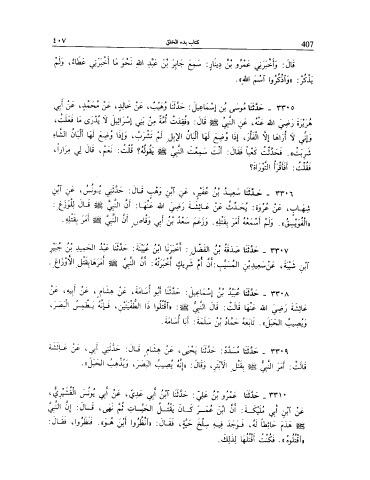 407 كتاب بدء الخلق ٤٠٧
قَالَ: وَأَخْبَرَنِي عَمْرُو بْنُ دِينَارٍ: سَمِعَ جَابِرَ بْنَ عَبْدِ اللهِ نَحْوَ مَا أَخْبَرَنِي عَطَاءٌ، وَلَمْ
يَذْكُرْ: «وَاذْكُرُوا اسْمَ اللهِ».
٣٣٠٥ - حَدَّثَنَا مُوسَى بْنُ إِسْمَاعِيلَ: حَدَّثَنَا وُهَيْبٌ، عَنْ خَالِدٍ، عَنْ مُحَمَّدٍ، عَنْ أَبِي
هُرَيْرَةَ رَضِيَ اللهُ عَنْهُ، عَنِ النَّبِيِّ ﷺ قَالَ: «فُقِدَتْ أُمَّةٌ مِنْ بَنِي إِسْرَائِيلَ لَا يُدْرَى مَا فَعَلَتْ،
وَإِنِّي لَا أُرَاهَا إِلَّا الْفَأْرَ، إِذَا وُضِعَ لَهَا أَلْبَانُ الإِبِلِ لَمْ تَشْرَبْ، وَإِذَا وُضِعَ لَهَا أَلْبَانُ الشَّاءِ
شَرِبَتْ». فَحَدَّثْتُ كَعْباً فَقَالَ: أَنْتَ سَمِعْتَ النَّبِيَّ ﷺ يَقُولُهُ؟ قُلْتُ: نَعَمْ، قَالَ لِي مِرَاراً،
فَقُلْتُ: أَفَأَقْرَأُ التَّوْرَاةَ؟
٣٣٠٦ - حَدَّثَنَا سَعِيدُ بْنُ عُفَيْرٍ، عَنِ ابْنِ وَهْبٍ قَالَ: حَدَّثَنِي يُونُسُ، عَنِ ابْنِ
شِهَابٍ، عَنْ عُرْوَةَ: يُحَدِّثُ عَنْ عَائِشَةَ رَضِيَ اللهُ عَنْهَا: أَنَّ النَّبِيَّ ﷺ قَالَ لِلْوَزَغِ:
«الْفُوَيْسِقُ». وَلَمْ أَسْمَعْهُ أَمَرَ بِقَتْلِهِ. وَزَعَمَ سَعْدُ بْنُ أَبِي وَقَّاصٍ أَنَّ النَّبِيَّ ﷺ أَمَرَ بِقَتْلِهِ.
٣٣٠٧ - حَدَّثَنَا صَدَقَةُ بْنُ الْفَضْلِ: أَخْبَرَنَا ابْنُ عُيَيْنَةَ: حَدَّثَنَا عَبْدُ الْحَمِيدِ بْنُ جُبَيْرِ
ابْنِ شَيْبَةَ، عَنْ سَعِيدِ بْنِ الْمُسَيَّبِ: أَنَّ أُمَّ شَرِيكٍ أَخْبَرَتْهُ: أَنَّ النَّبِيَّ ﷺ أَمَرَهَا بِقَتْلِ الْأَوْزَاغِ.
٣٣٠٨ - حَدَّثَنَا عُبَيْدُ بْنُ إِسْمَاعِيلَ: حَدَّثَنَا أَبُو أُسَامَةَ، عَنْ هِشَامٍ، عَنْ أَبِيهِ، عَنْ
عَائِشَةَ رَضِيَ اللهُ عَنْهَا قَالَتْ: قَالَ النَّبِيُّ ﷺ: «اقْتُلُوا ذَا الطُّفْيَتَيْنِ، فَإِنَّهُ يَطْمِسُ الْبَصَرَ،
وَيُصِيبُ الْحَبَلَ». تَابَعَهُ حَمَّادُ بْنُ سَلَمَةَ: أَبَا أُسَامَةَ.
٣٣٠٩ - حَدَّثَنَا مُسَدَّدٌ: حَدَّثَنَا يَحْيَى، عَنْ هِشَامٍ قَالَ: حَدَّثَنِي أَبِي، عَنْ عَائِشَةَ
قَالَتْ: أَمَرَ النَّبِيُّ ﷺ بِقَتْلِ الْأَبْتَرِ، وَقَالَ: «إِنَّهُ يُصِيبُ الْبَصَرَ، وَيُذْهِبُ الْحَبَلَ».
٣٣١٠ - حَدَّثَنَا عَمْرُو بْنُ عَلِيٍّ: حَدَّثَنَا ابْنُ أَبِي عَدِيٍّ، عَنْ أَبِي يُونُسَ الْقُشَيْرِيِّ،
عَنِ ابْنِ أَبِي مُلَيْكَةَ: أَنَّ ابْنَ عُمَرَ كَانَ يَقْتُلُ الْحَيَّاتِ ثُمَّ نَهَى، قَالَ: إِنَّ النَّبِيَّ
ﷺ هَدَمَ حَائِطاً لَهُ، فَوَجَدَ فِيهِ سِلْخَ حَيَّةٍ، فَقَالَ: «انْظُرُوا أَيْنَ هُوَ». فَنَظَرُوا، فَقَالَ:
«اقْتُلُوهُ». فَكُنْتُ أَقْتُلُهَا لِذَلِكَ.